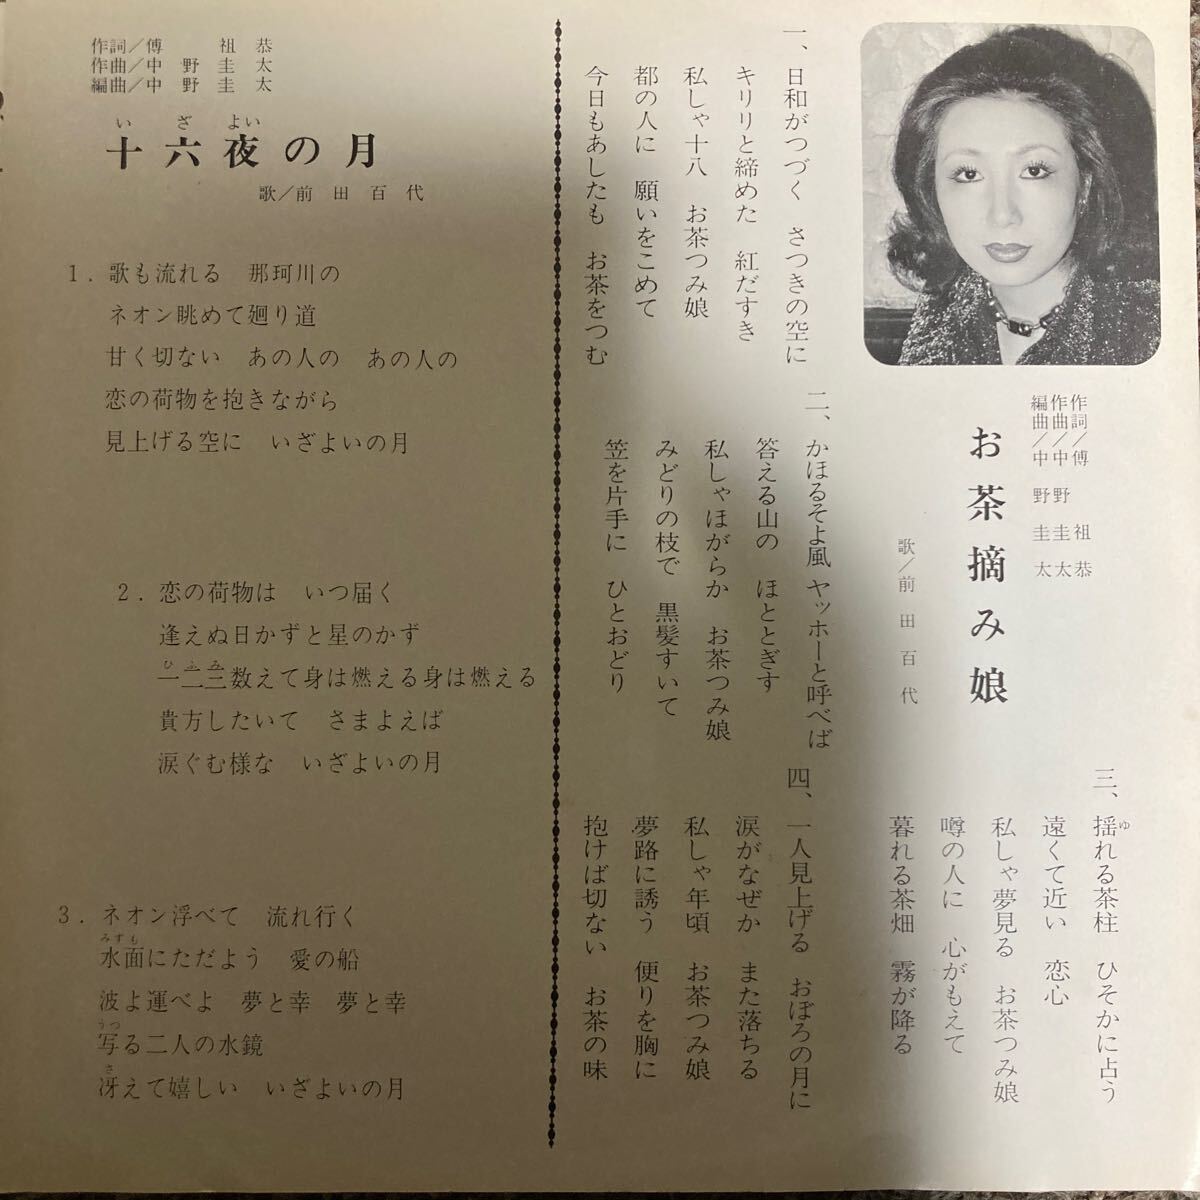 お茶摘み娘
作詞／傅 祖 恭
作曲／中 野 圭 太
編曲／中 野 圭 太
歌／前 田 百 代
一、日和がつづく さつきの空に
キリリと締めた 紅だすき
私しゃ十八 お茶つみ娘
都の人に 願いをこめて
今日もあしたも お茶をつむ
二、かほるそよ風 ヤッホーと呼べば
答える山の ほととぎす
私しゃほがらか お茶つみ娘
みどりの枝で 黒髪すいて
笠を片手に ひとおどり
三、揺れる茶柱 ひそかに占う
ゆ
遠くて近い 恋心
私しゃ夢見る お茶つみ娘
噂の人に 心がもえて
暮れる茶畑 霧が降る
四、一人見上げる おぼろの月に
涙がなぜか また落ちる
私しゃ年頃 お茶つみ娘
夢路に誘う 便りを胸に
抱けば切ない お茶の味
作詞／傅 祖 恭
作曲／中 野 圭 太
編曲／中 野 圭 太
い ざ よい
十六夜の月
歌／前 田 百 代
1．歌も流れる 那珂川の
ネオン眺めて廻り道
甘く切ない あの人の あの人の
恋の荷物を抱きながら
見上げる空に いざよいの月
2．恋の荷物は いつ届く
逢えぬ日かずと星のかず
ひ ふ み
一二三数えて身は燃える身は燃える
貴方したいて さまよえば
涙ぐむ様な いざよいの月
3．ネオン浮べて 流れ行く
みずも
水面にただよう 愛の船
波よ運べよ 夢と幸 夢と幸
うつ
写る二人の水鏡
さ
冴えて嬉しい いざよいの月